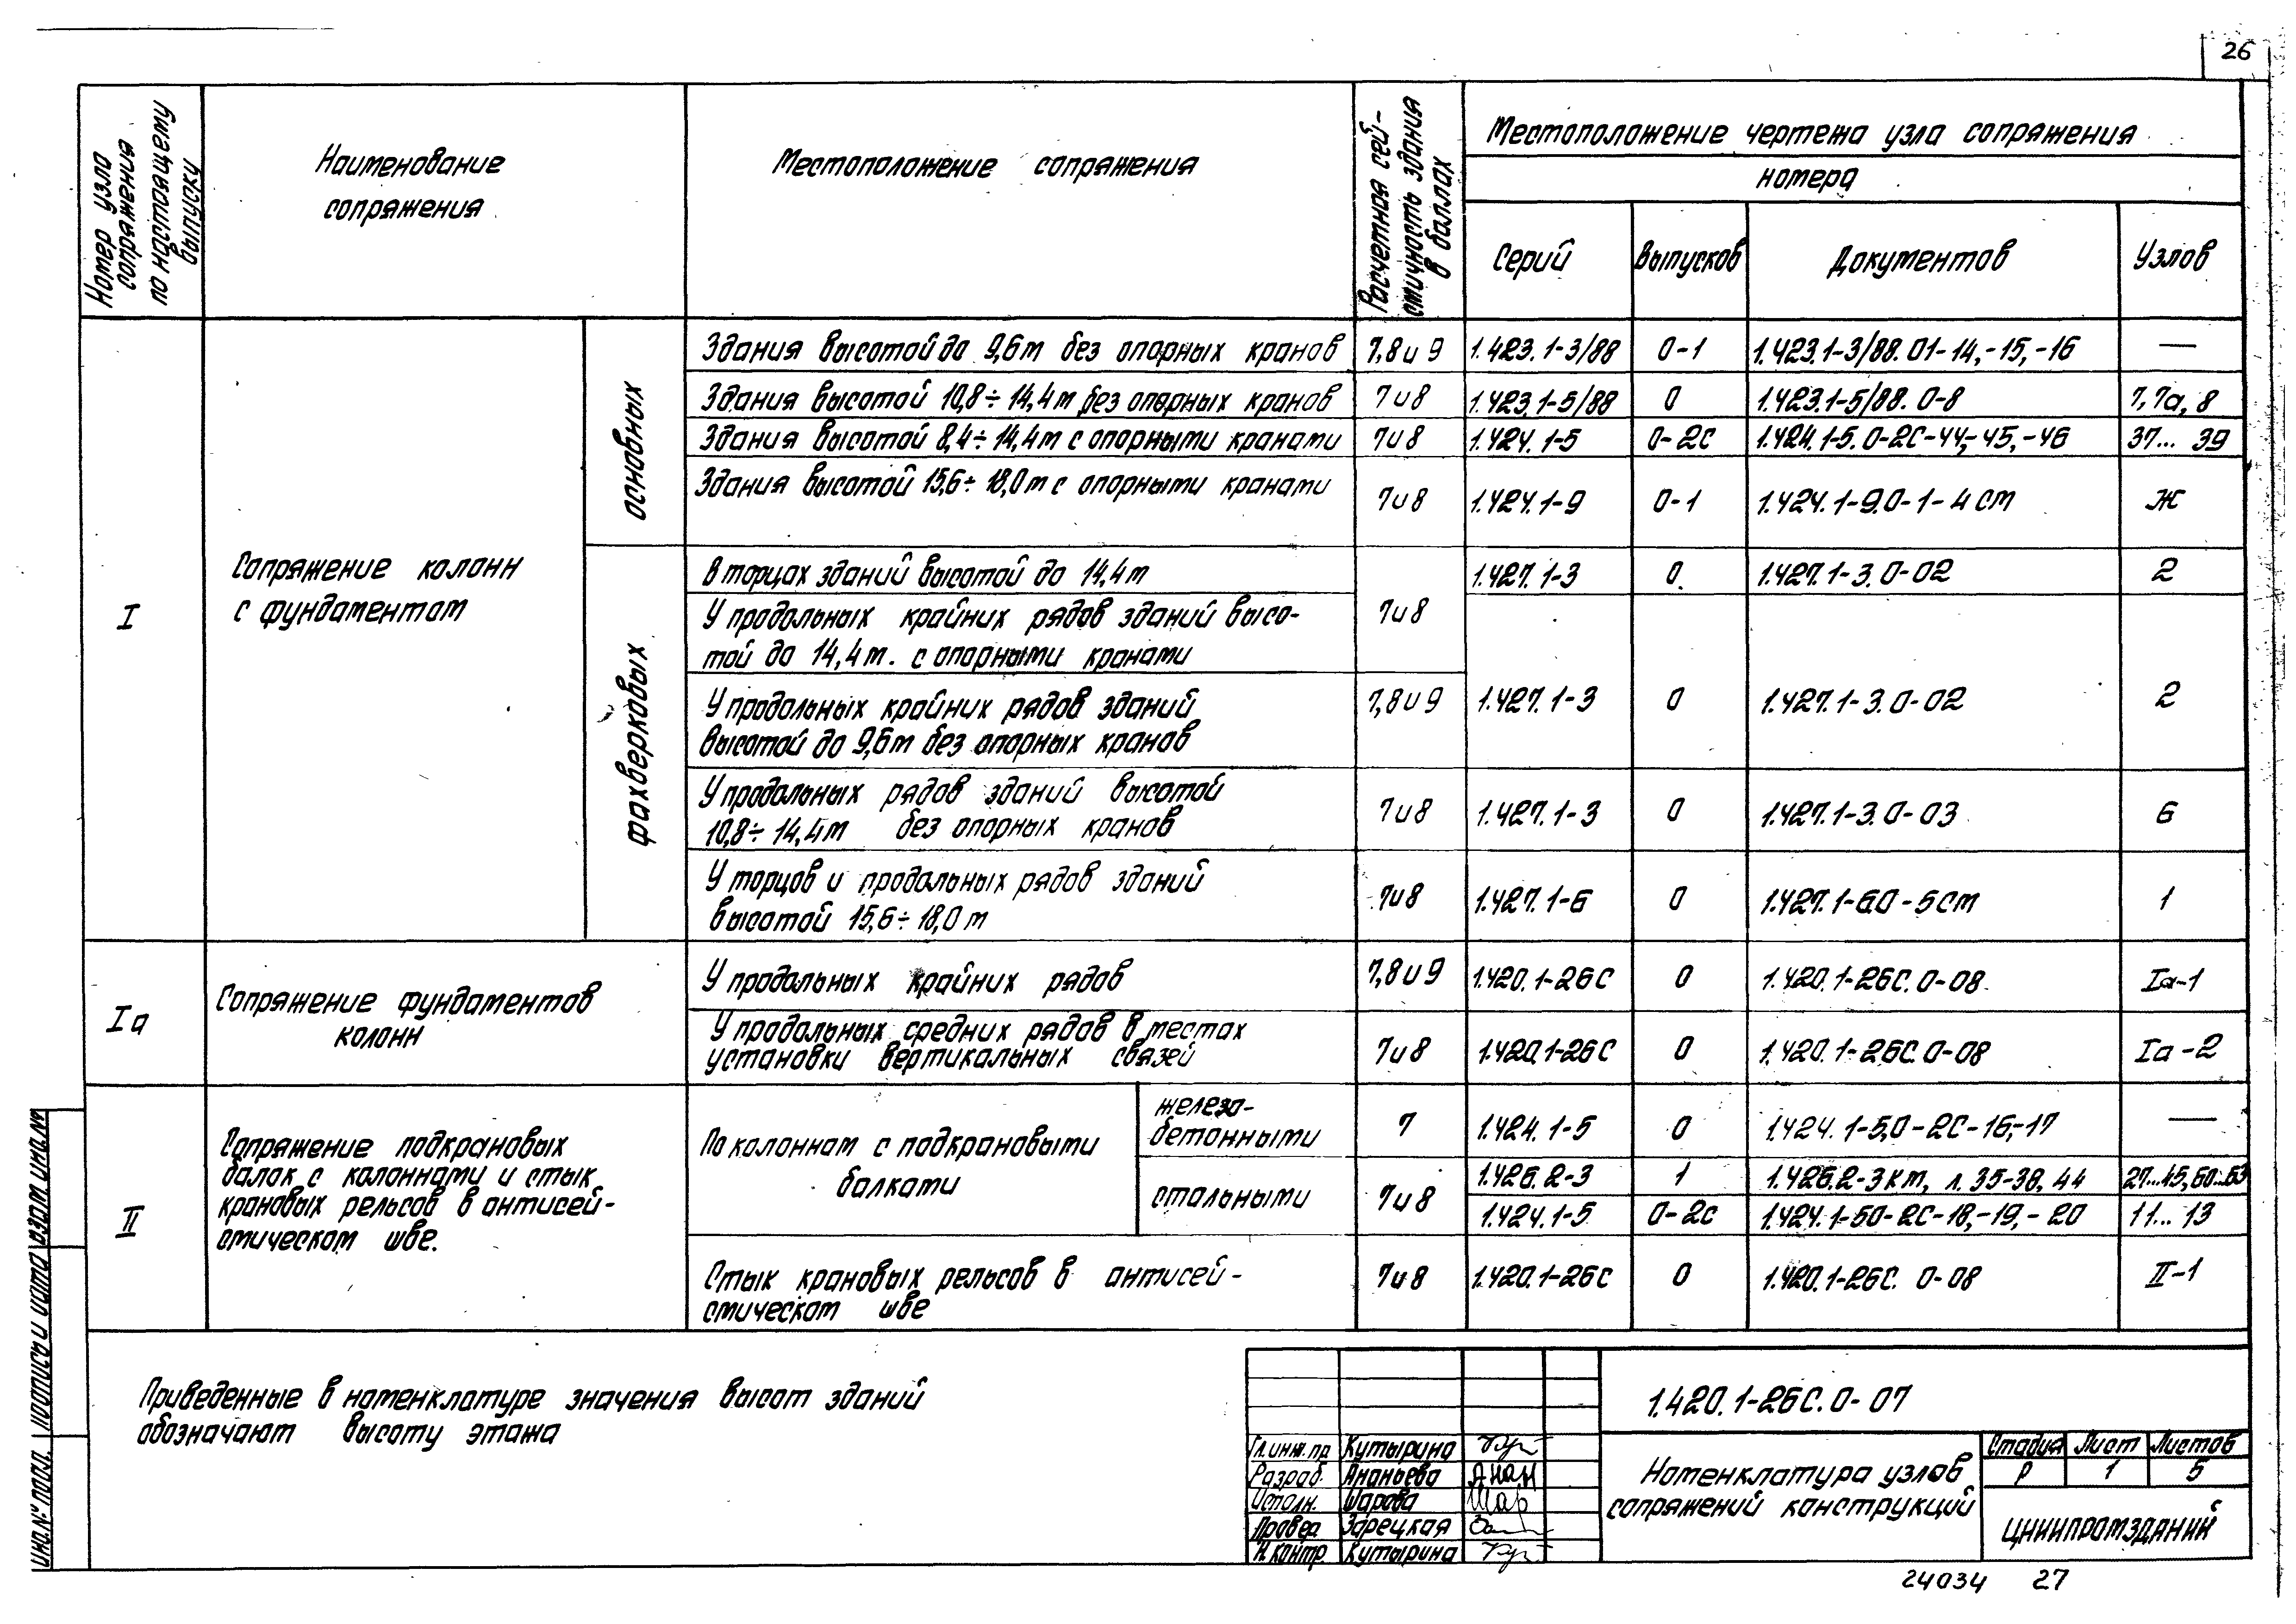 26
Номер узла
сопряжения
по настоящему
выпуску
Наименование
сопряжения
Местоположение сопряжения
Расчетная сей-
смичность здания
в баллах
Местоположение чертежа узла сопряжения
номера
Серий
Выпусков
Документов
Узлов
I
Сопряжение колонн
с фундаментом
основных
Здания высотой до 9,6м без опорных кранов 7,8 и 9 1.423.1-3/88 0-1 1.423.1-3/88.01-14,-15,-16 —
Здания высотой 10,8÷14,4м без опорных кранов 7 и 8 1.423.1-5/88 0 1.423.1-5/88.0-8 7, 7а, 8
Здания высотой 8,4÷14,4м с опорными кранами 7 и 8 1.424.1-5 0-2С 1.424.1-5.0-2С-44,-45,-46 37... 39
Здания высотой 15,6÷18,0м с опорными кранами 7 и 8 1.424.1-9 0-1 1.424.1-9.0-1-4 СМ Ж
фахверковых
В торцах зданий высотой до 14,4м 1.427.1-3 0 1.427.1-3.0-02 2
У продольных крайних рядов зданий высо-
той до 14,4м. с опорными кранами
7 и 8
У продольных крайних рядов зданий
высотой до 9,6м без опорных кранов
7,8 и 9 1.427.1-3 0 1.427.1-3.0-02 2
У продольных рядов зданий высотой
10,8÷14,4м без опорных кранов
7 и 8 1.427.1-3 0 1.427.1-3.0-03 6
У торцов и продольных рядов зданий
высотой 15,6÷18,0м
7 и 8 1.427.1-6 0 1.427.1-6.0-5СМ 1
Iа
Сопряжение фундаментов
колонн
У продольных крайних рядов 7,8 и 9 1.420.1-26С 0 1.420.1-26С.0-08 Iа-1
У продольных средних рядов в местах
установки вертикальных связей
7 и 8 1.420.1-26С 0 1.420.1-26С.0-08 Iа-2
II
Сопряжение подкрановых
балок с колоннами и стык
крановых рельсов в антисей-
смическом шве.
По колоннам с подкрановыми
балками
железо-
бетонными
7 1.424.1-5 0 1.424.1-5,0-2С-16,-17 —
стальными
7 и 8
1.426.2-3 1 1.426.2-3 КМ, л. 35-38, 44
1.424.1-5 0-2С 1.424.1-50-2С-18,-19,-20 11... 13
Стык крановых рельсов в антисей-
смическом шве
7 и 8 1.420.1-26С 0 1.420.1-26С. 0-08 II-1
Приведенные в номенклатуре значения высот зданий
обозначают высоту этажа
1.420.1-26С.0-07
Гл.инж.пр Кутырина
Разраб. Ананьева
Исполн. Шарова
Провер. Зарецкая
Н.контр Кутырина
Номенклатура узлов
сопряжений конструкций
Стадия Лист Листов
Р 1 5
ЦНИИПРОМЗДАНИЙ
24034 27
Инв.№ подл. Подпись и дата Взам инв.№